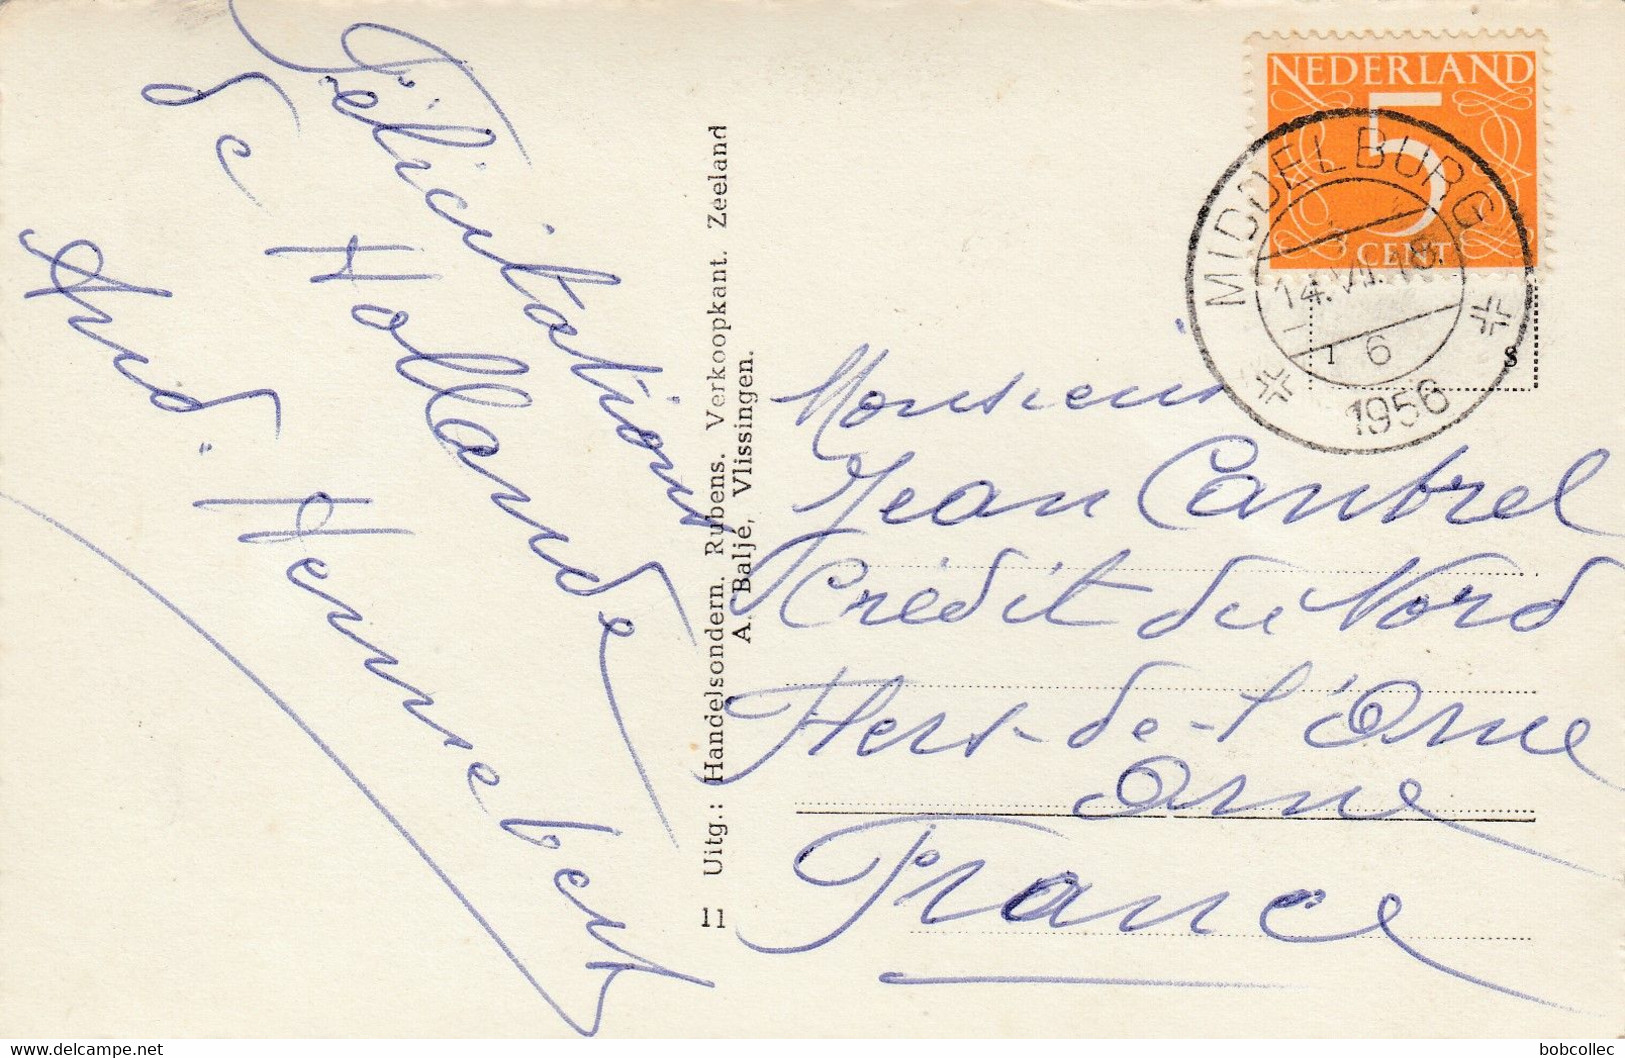 Félicitations
de Hollande
And. Hennebert
Uitg.: Handelsondern. Rubens. Verkoopkant. Zeeland
A. Balje, Vlissingen.
11
NEDERLAND
5
CENT
MIDDELBURG
14.VII.18
6
1956
1
S
Monsieur
Jean Cambrel
Crédit du Nord
Flers-de-l'Orne
Orne
France
bobcollec